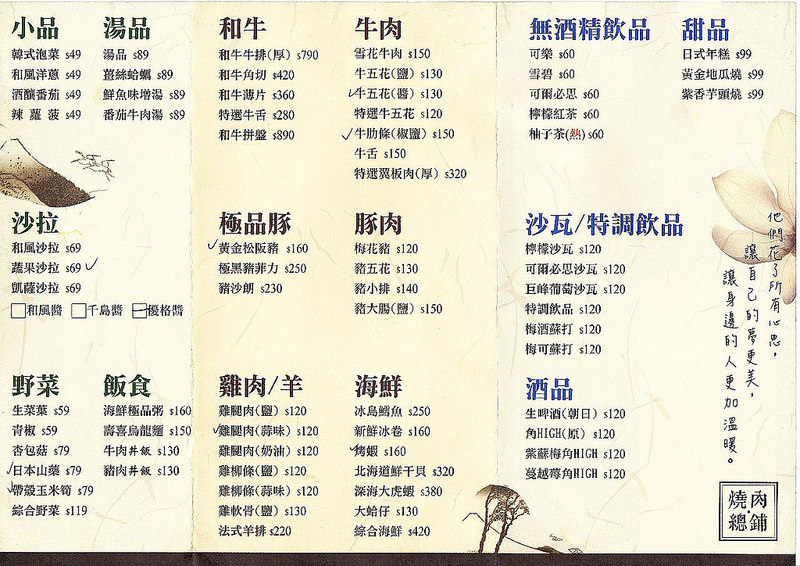 小品
韓式泡菜 $49
和風洋蔥 $49
酒釀番茄 $49
辣蘿菠 $49
湯品
湯品 $89
薑絲蛤蠣 $89
鮮魚味增湯 $89
番茄牛肉湯 $89
沙拉
和風沙拉 $69
蔬果沙拉 $69
凱薩沙拉 $69
和風醬 千島醬 優格醬
野菜
生菜葉 $59
青椒 $59
杏包菇 $79
日本山藥 $79
帶殼玉米筍 $79
綜合野菜 $119
飯食
海鮮極品粥 $160
壽喜烏龍麵 $150
牛肉丼飯 $130
豬肉丼飯 $130
和牛
和牛牛排(厚) $790
和牛角切 $420
和牛薄片 $360
特選牛舌 $280
和牛拼盤 $890
牛肉
雪花牛肉 $150
牛五花(鹽) $130
牛五花(醬) $130
特選牛五花 $120
牛肋條(椒鹽) $150
牛舌 $150
特選翼板肉(厚) $320
極品豚
黃金松阪豬 $160
極黑豬菲力 $250
豬沙朗 $230
豚肉
梅花豬 $120
豬五花 $130
豬小排 $140
豬大腸(鹽) $150
雞肉/羊
雞腿肉(鹽) $120
雞腿肉(蒜味) $120
雞腿肉(奶油) $120
雞柳條(鹽) $120
雞柳條(蒜味) $120
雞軟骨(鹽) $130
法式羊排 $220
海鮮
冰島鱈魚 $250
新鮮冰卷 $160
烤蝦 $160
北海道鮮干貝 $320
深海大虎蝦 $380
大蛤仔 $130
綜合海鮮 $420
無酒精飲品
可樂 $60
雪碧 $60
可爾必思 $60
檸檬紅茶 $60
柚子茶(熱) $60
甜品
日式年糕 $99
黃金地瓜燒 $99
紫香芋頭燒 $99
沙瓦/特調飲品
檸檬沙瓦 $120
可爾必思沙瓦 $120
巨峰葡萄沙瓦 $120
特調飲品 $120
梅酒蘇打 $120
梅可蘇打 $120
酒品
生啤酒(朝日) $120
角HIGH(原) $120
紫蘇梅角HIGH $120
蔓越莓角HIGH $120
他們花了所有心思,
讓自己的夢更美,
讓身邊的人更加溫暖。
燒肉
總鋪